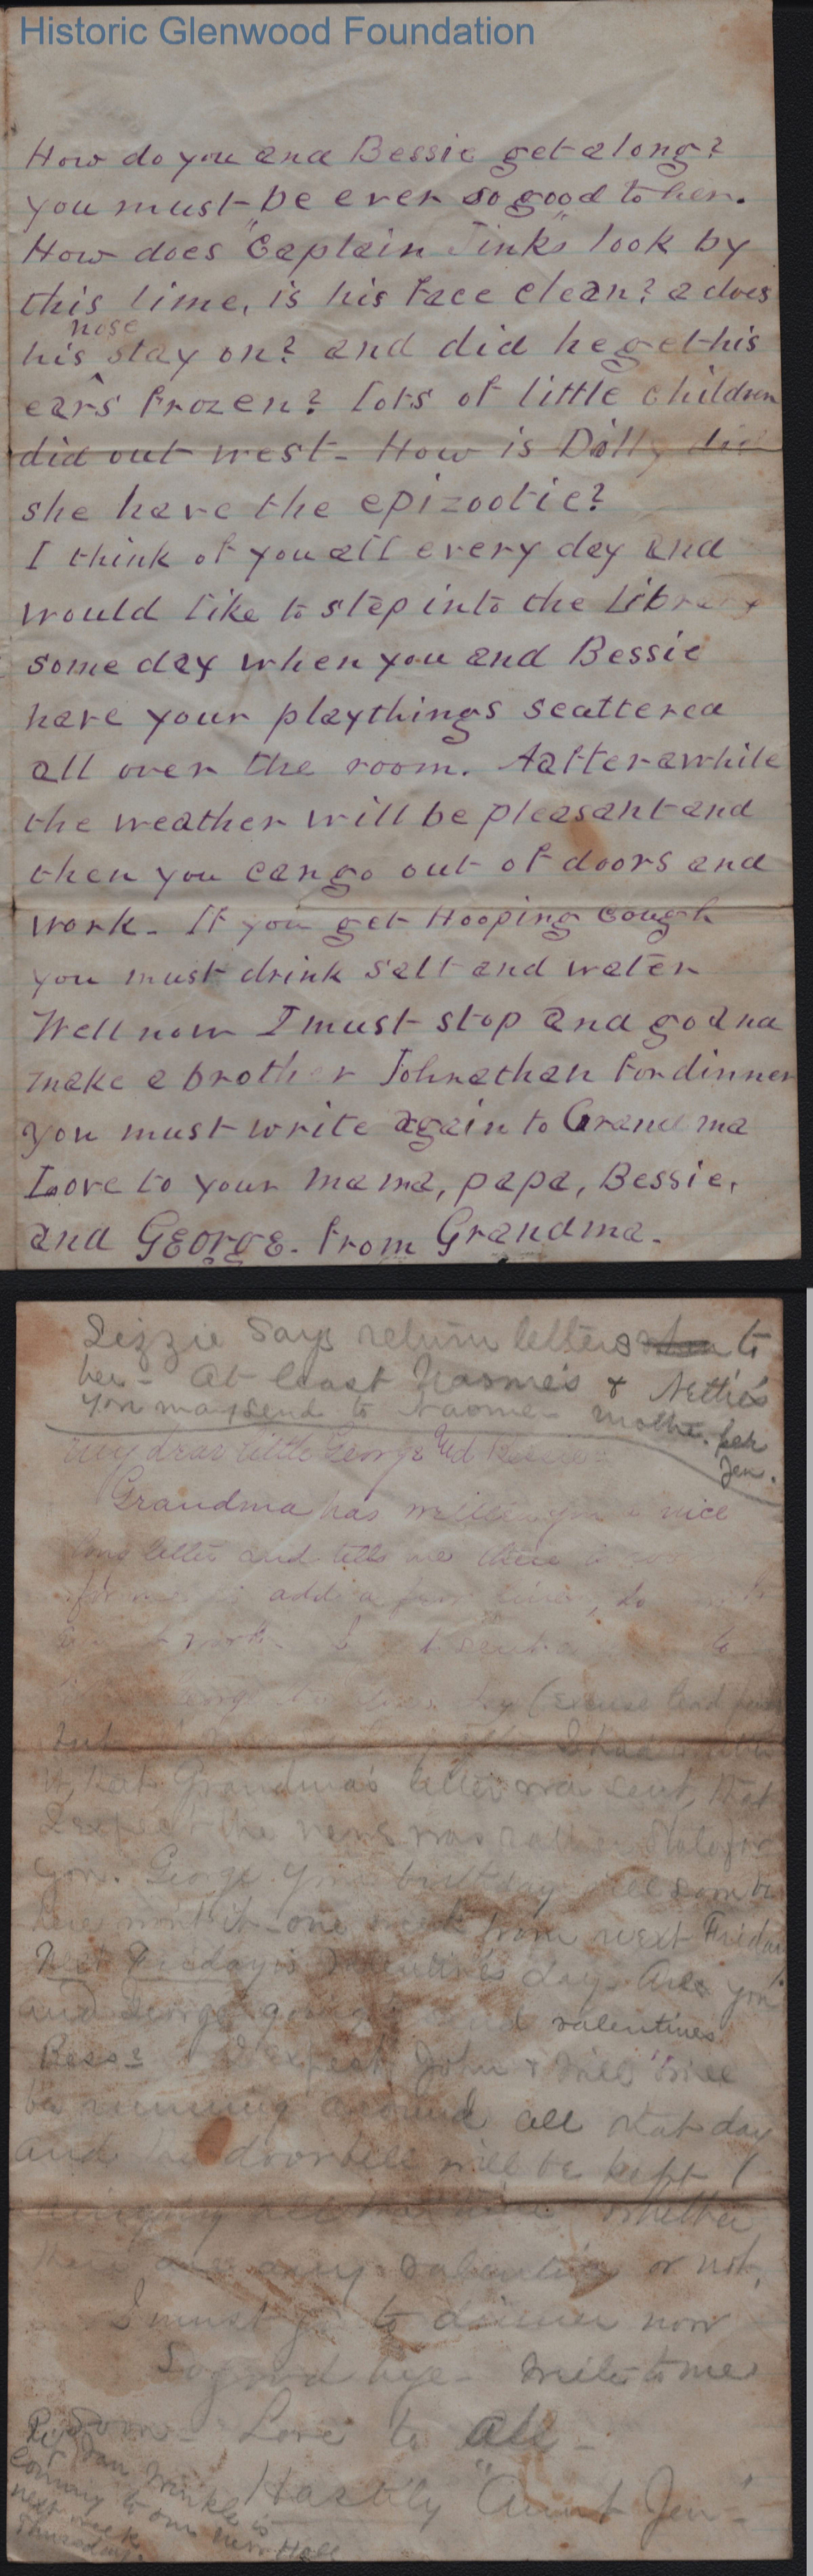 Historic Glenwood Foundation
How do you and Bessie get along?
you must be ever so good to her.
How does "Captain Jinks" look by
this time, is his face clean? & does
his nose stay on? and did he get his
ears frozen? lots of little children
did out west - How is Dolly did
she have the epizootic?
I think of you all every day and
would like to step into the Library
some day when you and Bessie
have your playthings scattered
all over the room. Aafter awhile
the weather will be pleasant and
then you can go out of doors and
work - If you get Hooping cough
you must drink salt and water
Well now I must stop and go and
make a brother Johnathan for dinner
you must write again to Grandma
Love to your mama, papa, Bessie,
and George - from Grandma -
Lizzie says return letters to
her - At least Naomi's & Nettie's
you may send to Naomi - Mother. per
Jen.
My dear little George and Bessie -
Grandma has written you a nice
long letter and tells me there is
for me to add a few lines, so
work
(Excuse lead
but I had
Grandma's letter was sent, that
I expect the news was rather stale for
you. George your birthday will soon be
here won't it - one week from next Friday
Next Friday is Valentine's day. Are you
and George going to send valentines
Bess? I expect John & Will will
be running around all that day
and the doorbell will be kept
ringing all the time whether
there are any valentines or not,
I must go to dinner now
So good bye - Write to me
Soon - Love to all -
Hastily "Aunt Jen" -
Rip Van Winkle is
coming to our new Hall
next week
Thursday.